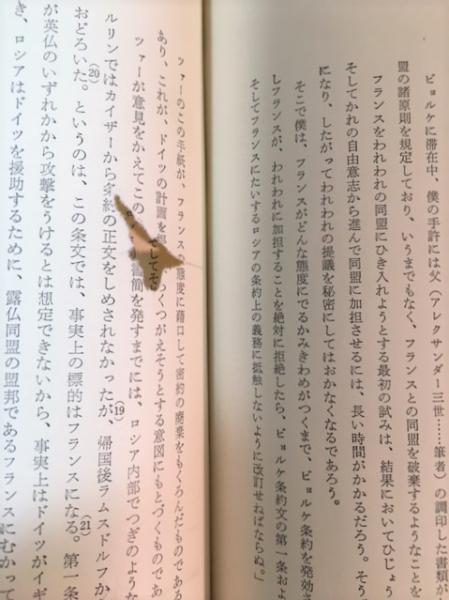 ビョルケに滞在中、僕の手許には父（アレクサンダー三世……筆者）の調印した書類が
盟の諸原則を規定しており、いうまでもなく、フランスとの同盟を破棄するようなことを
フランスをわれわれの同盟にひき入れようとする最初の試みは、結果においてひじょう
そしてかれの自由意志から進んで同盟に加担させるには、長い時間がかかるだろう。そう
になり、したがってわれわれの提議を秘密にしてはおかなくなるであろう。
そこで僕は、フランスがどんな態度にでるかみきわめがつくまで、ビョルケ条約を発効さ
しフランスが、われわれに加担することを絶対に拒絶したら、ビョルケ条約文の第一条およ
そしてフランスにたいするロシアの条約上の義務に抵触しないように改訂せねばならぬ。」
ツァーのこの手紙が、フランス 態度に藉口して密約の廃棄をもくろんだものである
あり、これが、ドイツの計画を くつがえそうとする意図にもとづくものであ
ツァーが意見をかえてこの 書簡を発すまでには、ロシア内部でつぎのような
ルリンではカイザーから条約の正文をしめされなかったが、(19)帰国後ラムスドルフか
おどろいた。(20)というのは、この条文では、事実上の標的はフランスになる。(21)第一条
が英仏のいずれかから攻撃をうけるとは想定できないから、事実上はドイツがイギ
き、ロシアはドイツを援助するために、露仏同盟の盟邦であるフランスにむかって
でしてみ